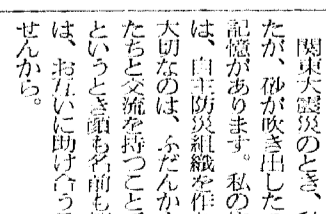 関東大震災のとき、
たが、砂が吹き出した
記憶があります。私の
は、自主防災組織を作
大切なのは、ふだんか
たちと交流を持つこと
というとき顔も名前も
は、お互いに助け合う
せんから。